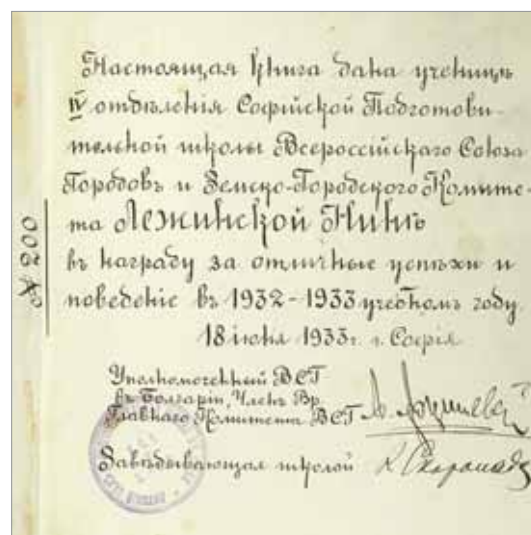 Настоящая книга дана ученицѣ
IV отдѣленія Софійской Подготови-
тельной школы Всероссійскаго Союза
Городовъ и Земско-Городского Комите-
та Лежинской Нинѣ
въ награду за отличные успѣхи и
поведеніе въ 1932-1933 учебномъ году
18 іюня 1933 г. г. Софія
Уполномоченный ВСГ
въ Болгаріи, Членъ Вр.
Главнаго Комитета ВСГ
Завѣдывающая школой
№ 200